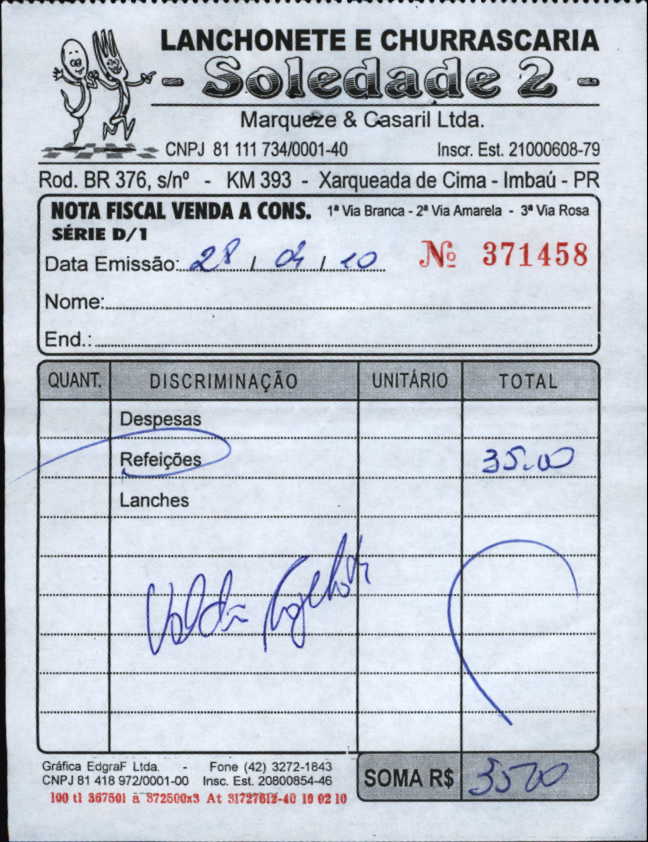 LANCHONETE E CHURRASCARIA
- Soledade 2 -
Marqueze & Casaril Ltda.
CNPJ 81 111 734/0001-40 Inscr. Est. 21000608-79
Rod. BR 376, s/nº - KM 393 - Xarqueada de Cima - Imbaú - PR
NOTA FISCAL VENDA A CONS. 1ª Via Branca - 2ª Via Amarela - 3ª Via Rosa
SÉRIE D/1
Data Emissão: 28 / 04 / 10 Nº 371458
Nome:
End.:
QUANT. DISCRIMINAÇÃO UNITÁRIO TOTAL
Despesas
Refeições 35.00
Lanches
Gráfica EdgraF Ltda. - Fone (42) 3272-1843
CNPJ 81 418 972/0001-00 Insc. Est. 20800854-46
SOMA R$ 3500
100 tl 367501 à 372500x3 At 31727612-40 10 02 10